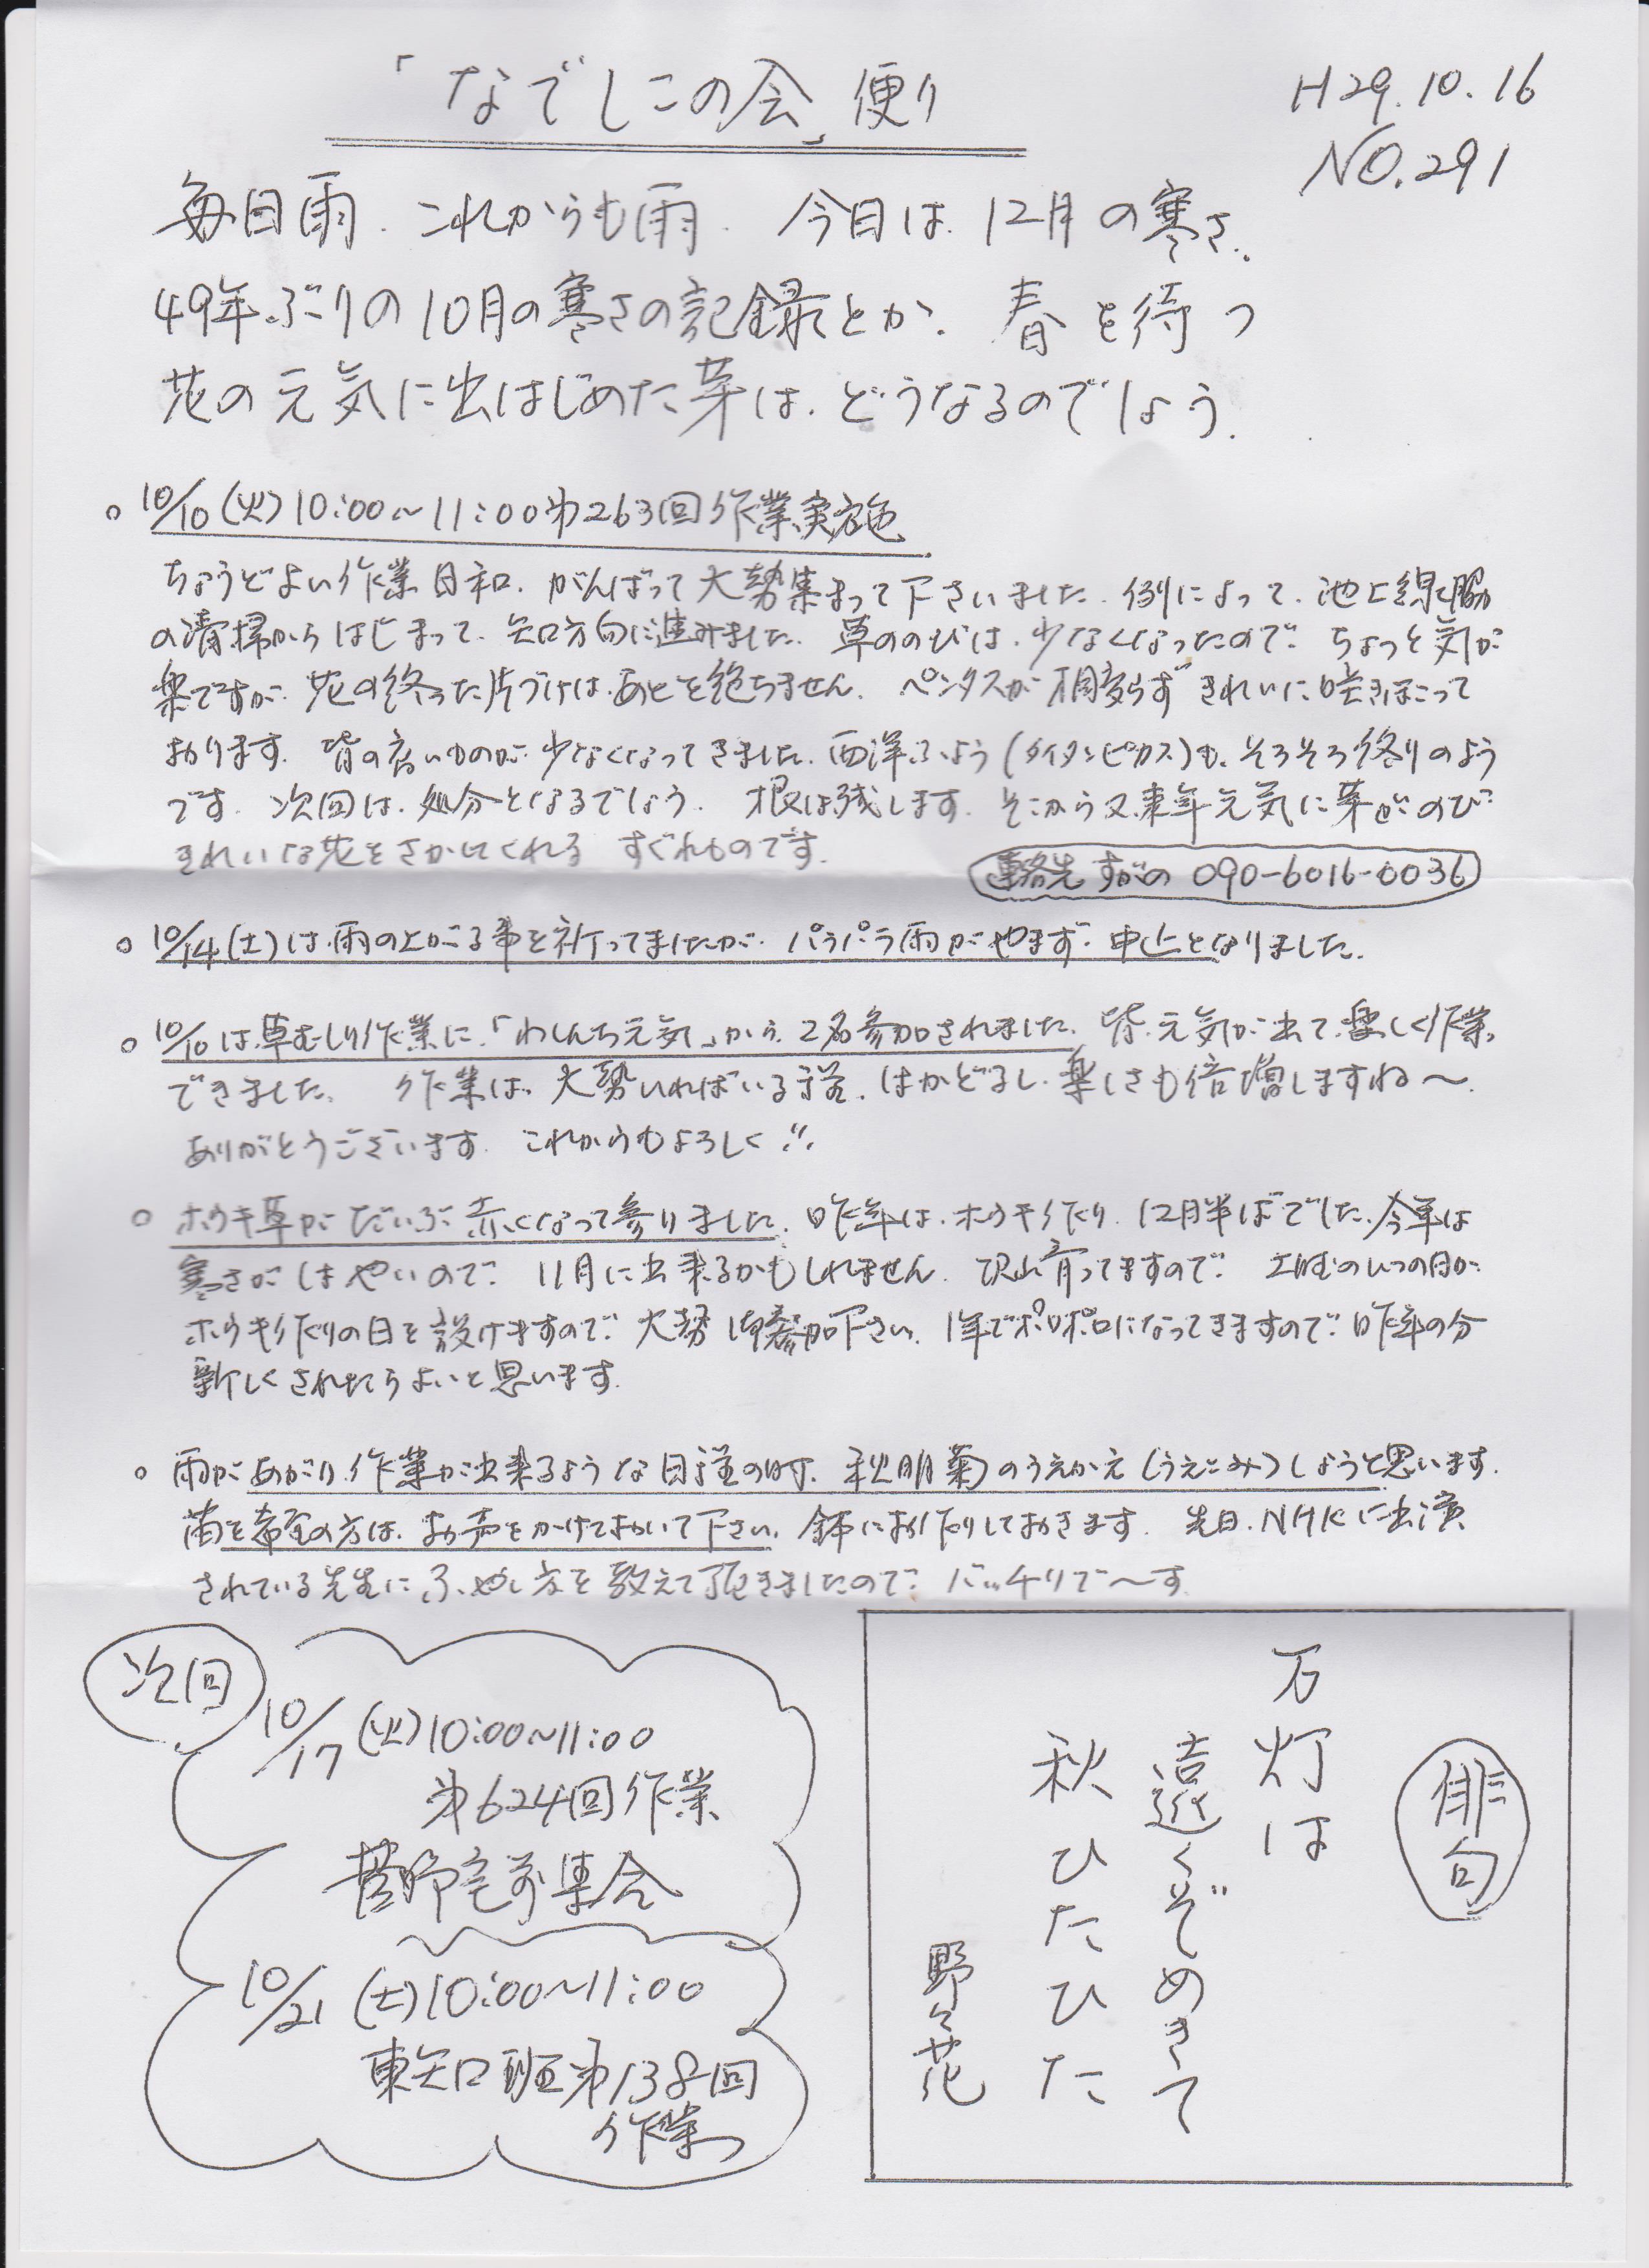 「なでしこの会」便り
H29.10.16
NO.291
毎日雨.これからも雨.今日は.12月の寒さ.
49年ぶりの10月の寒さの記録とか.春を待つ
花の元気に出はじめた芽は.どうなるのでしょう.
○ 10/10(火)10:00〜11:00第263回作業実施
ちょうどよい作業日和.がんばって大勢集まって下さいました.例によって.池上線脇
の清掃からはじまって.矢口方向に進みました.草ののびは.少なくなったので.ちょっと気が
楽ですが.花の終った片づけは.あとを絶ちません.ペンタスが相変らずきれいに咲きほこって
おります.背の高いものが.少なくなってきました.西洋ふよう(タイタンビカス)も.そろそろ終りのよう
です.次回は.処分となるでしょう.根は残します.そこから又.来年元気に芽がのび
きれいな花をさかせてくれる すぐれものです.
連絡先 すがの 090-6016-0036
○ 10/14(土)は.雨の上がる事を祈ってましたが.パラパラ雨がやまず.中止となりました.
○ 10/10は.草むしり作業に.「わしんち元気」から.2名参加されました.皆.元気が出て.楽しく作業
できました.作業は.大勢いればいる程.はかどるし.楽しさも倍増しますね〜.
ありがとうございます.これからもよろしく!!
○ ホウキ草がだいぶ赤くなって参りました.昨年は.ホウキ作り.12月半ばでした.今年は
寒さがはやいので.11月に出来るかもしれません.沢山育ってますので.土曜のいつの日か
ホウキ作りの日を設けますので.大勢御参加下さい.1年でボロボロになってきますので.昨年の分
新しくされたらよいと思います.
○ 雨があがり.作業が出来るような日程の時.秋明菊のうえかえ(うえこみ)しようと思います.
苗を希望の方は.お声をかけておいて下さい.鉢にお作りしておきます.先日.NHKに出演
されている先生にふやし方を教えて頂きましたので.バッチリで〜す.
次回
10/17(火)10:00〜11:00
第624回作業
菅野宅前集合
10/21(土)10:00〜11:00
東矢口班第138回
作業
俳句
万灯は
遠近くぞめきて
秋ひたひた
野々花